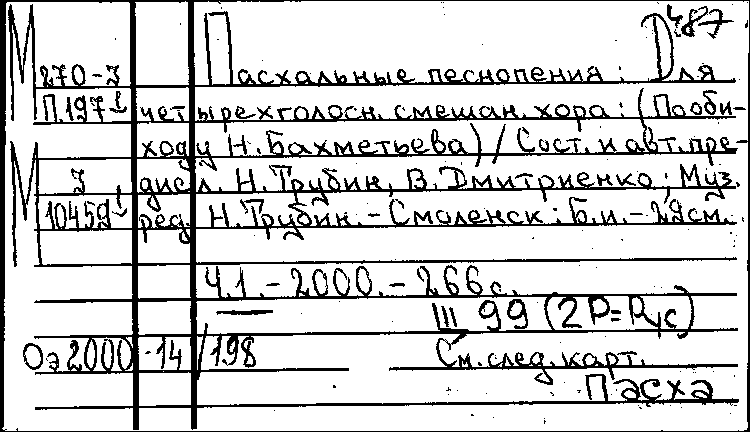 487
М 270-3 Пасхальные песнопения: Для
П.197 четырехголосн. смешан. хора: (По оби-
ходу Н. Бахметьева) / Сост. и авт. пре-
М 3 дисл. Н. Трубин, В. Дмитриенко; Муз.
10459 ред. Н. Трубин. - Смоленск: Б.и. - 29см.
Ч.1. - 2000. - 266 с.
III 99 (2Р=Рус)
Оэ 2000 -14 /198 См. след. карт.
Пасха